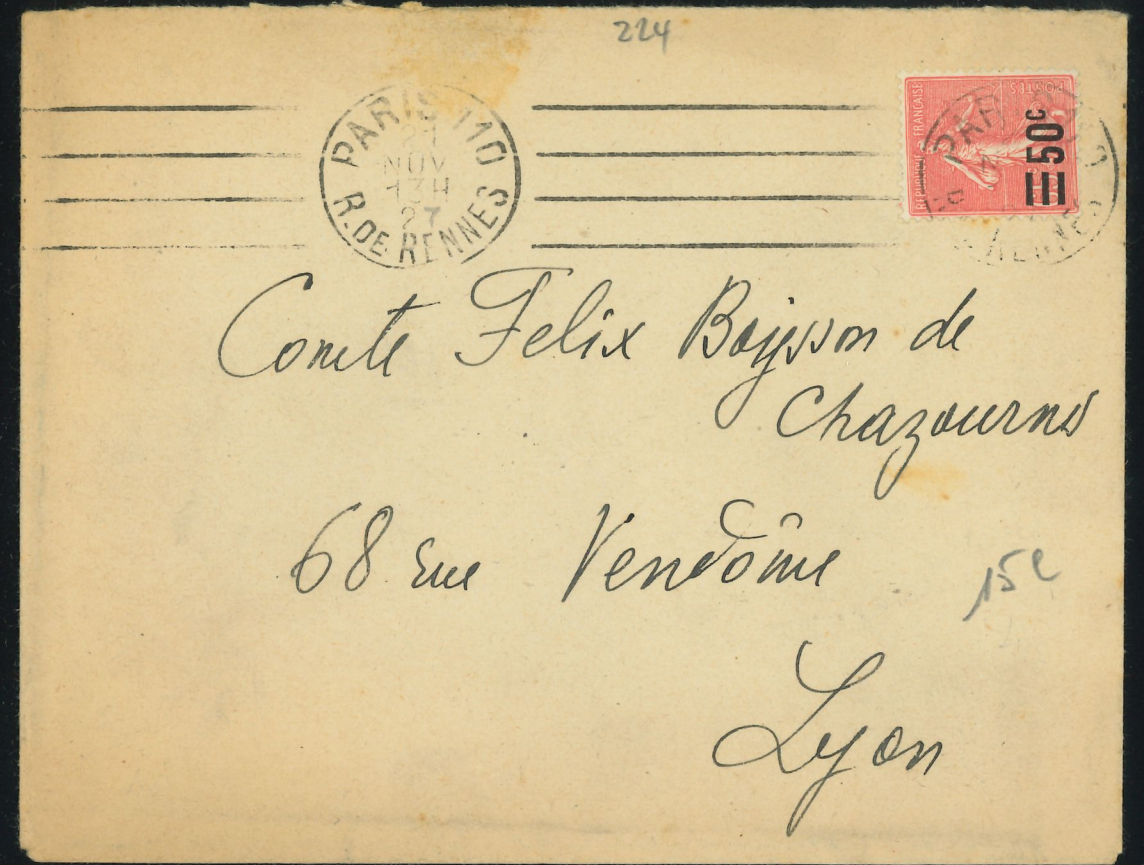 224
PARIS 110
21
NOV
13H
27
R. DE RENNES
REPUBLIQUE FRANCAISE
POSTES
50c
PAR
RENNES
Comte Felix Boysson de
Chazourne
68 rue Vendôme
15e
Lyon